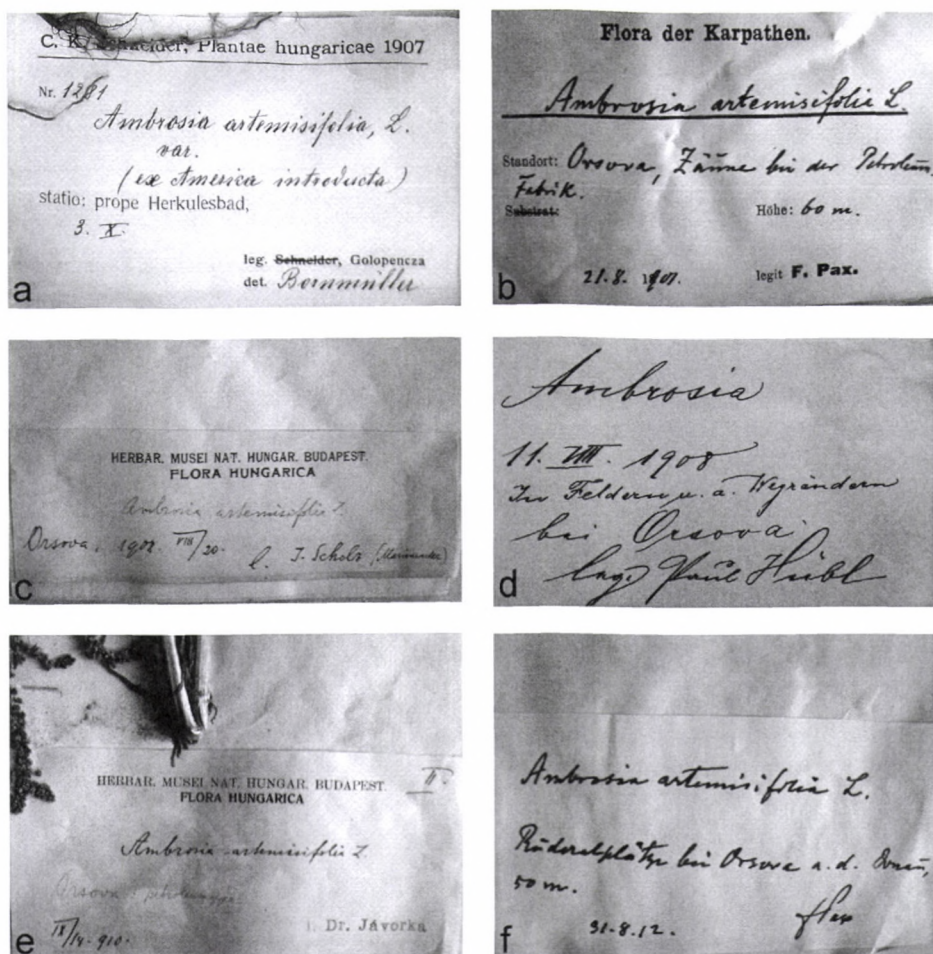 C. K. Schneider, Plantae hungaricae 1907
Nr. 1261
Ambrosia artemisifolia, L.
var.
(ex America introducta)
statio: prope Herkulesbad,
3. X.
leg. Schneider, Golopencza
det. Bornmüller
a
Flora der Karpathen.
Ambrosia artemisifolia L.
Standort: Orsova, Zäune bei der Petroleum
Fabrik.
Substrat: Höhe: 60 m.
21. 8. 1907. legit F. Pax.
b
HERBAR. MUSEI NAT. HUNGAR. BUDAPEST.
FLORA HUNGARICA
Ambrosia artemisifolia L.
Orsova, 190 VIII/20. l. J. Scholz
c
Ambrosia
11. VIII. 1908
In Feldern u. a. Wegrändern
bei Orsova
leg. Paul Hübl
d
HERBAR. MUSEI NAT. HUNGAR. BUDAPEST. II.
FLORA HUNGARICA
Ambrosia artemisifolia L.
Orsova
IX/14. 910. l. Dr. Jávorka
e
Ambrosia artemisifolia L.
Ruderalplätze bei Orsova a. d. Donau,
50 m.
31. 8. 12. f Pax
f